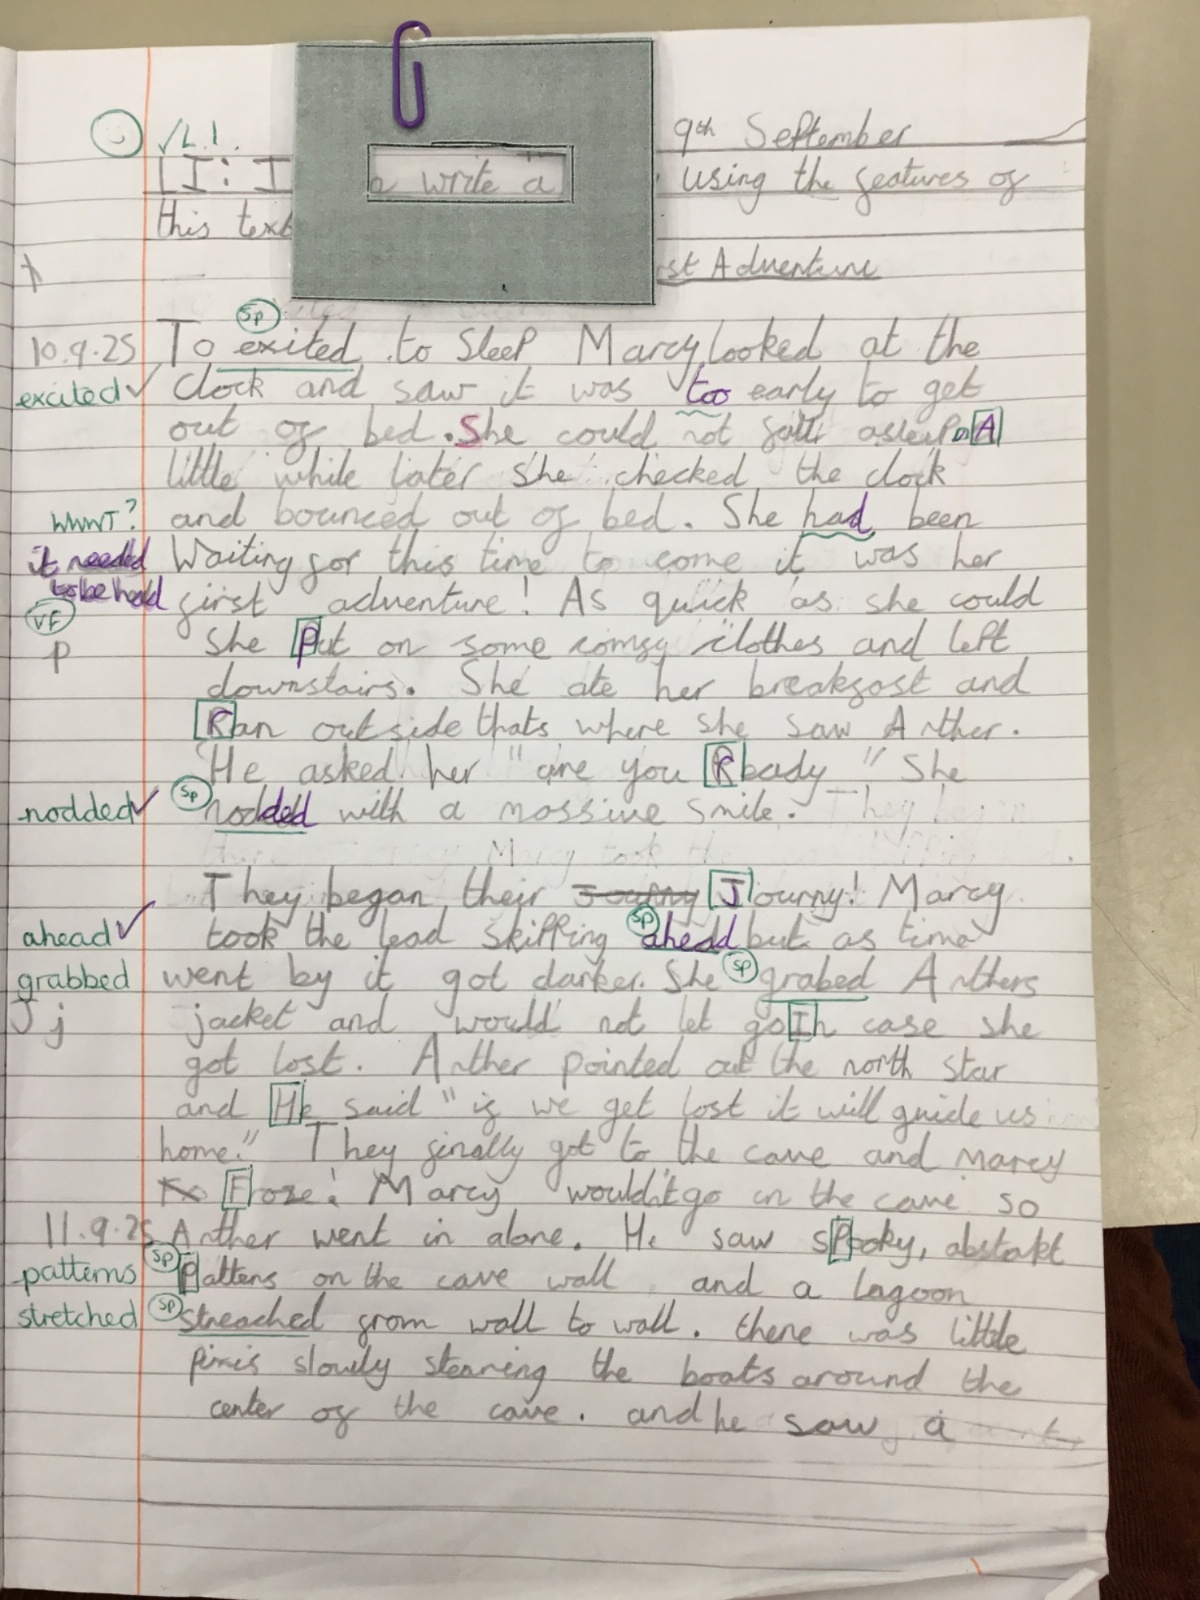 ✓L.I. 9th September
LI: I n write a using the features of
this text
st Adventure
sp
10.9.25 To exited to sleep Marcy looked at the
excited ✓ clock and saw it was too early to get
out of bed. She could not fall asleep A
little while later she checked the clock
WWWT? and bounced out of bed. She had been
it needed Waiting for this time to come it was her
to be head first adventure! As quick as she could
VF
p she Put on some comfy clothes and left
downstairs. She ate her breakfast and
Ran outside thats where she saw Arther.
He asked her "are you Ready" She
nodded ✓ sp nodded with a massive smile.
They began their Journy Journy! Marcy
ahead ✓ took the lead skipping sp ahead but as time
grabbed went by it got darker. She sp grabed Arthers
J j jacket and would not let go In case she
got lost. Arther pointed out the north star
and He said "if we get lost it will guide us
home." They finally got to the cave and Marcy
Froze! Marcy would'nt go in the cave so
11.9.25 Arther went in alone. He saw sPooky, abstakt
patterns sp Pattens on the cave wall and a lagoon
stretched sp streached from wall to wall. there was little
pixis slowly stearing the boats around the
center of the cave. and he saw a